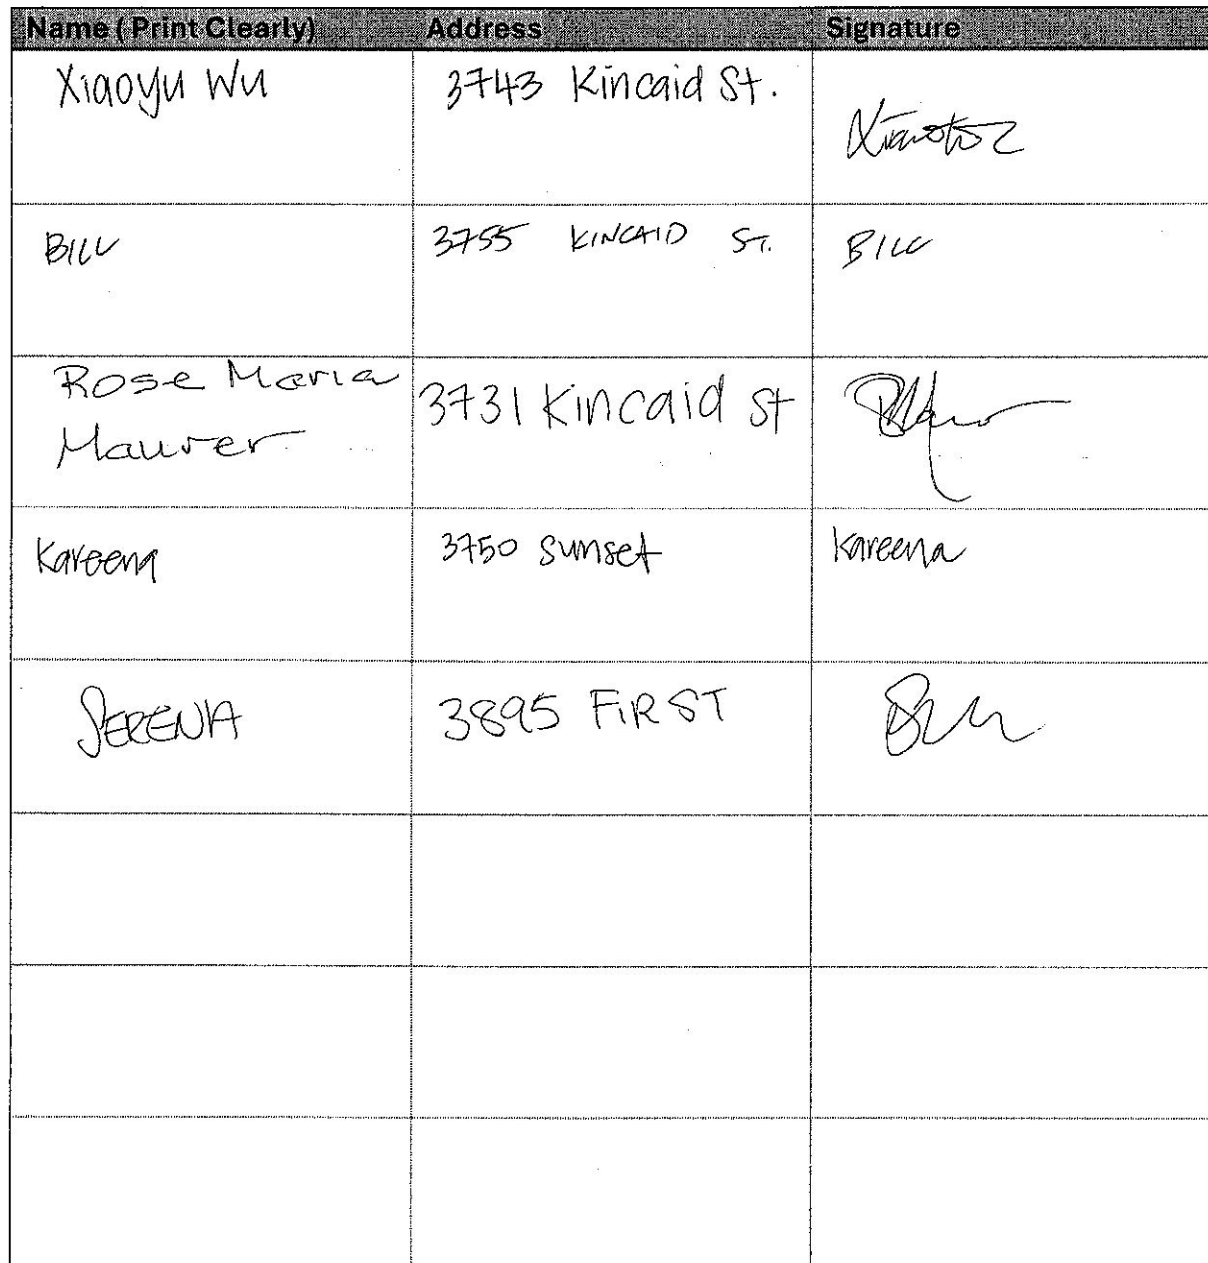 Name ( Print Clearly) Address Signature
Xiaoyu Wu 3743 Kincaid St.
BILL 3755 KINCAID ST. BILL
Rose Maria 3731 Kincaid St
Maurer
Kareena 3750 Sunset Kareena
SERENA 3895 FIRST